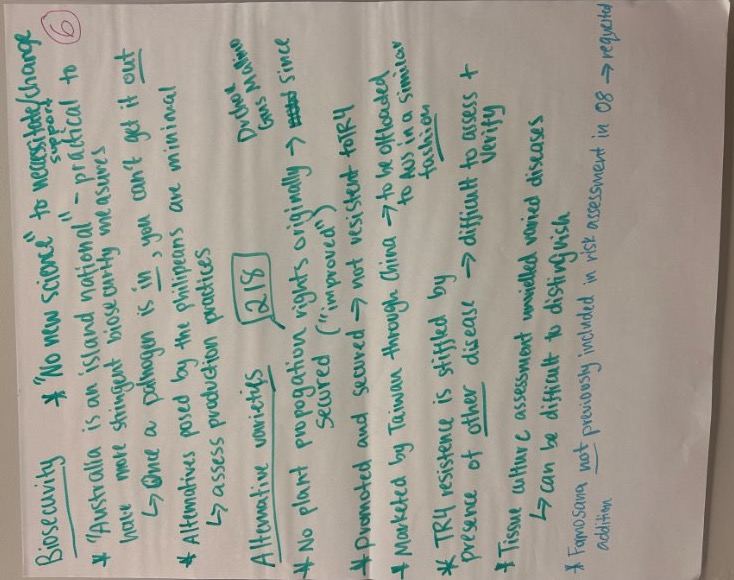 6
Biosecurity
* "No new science" to necessitate/support change
* "Australia is an island national" - practical to
have more stringent biosecurity measures
↳ Once a pathogen is in, you can't get it out
* Alternatives posed by the philipeans are minimal
↳ assess production practices
Alternative varieties
218
* No plant propogation rights originally → since
secured ("improved")
* Promoted and secured → not resistent to TR4
* Marketed by Taiwan through China → to be offloaded
to Aus in a similar
fashion
* TR4 resistence is stifled by
presence of other disease → difficult to assess +
verify
* Tissue culture assessment unveiled varied diseases
↳ can be difficult to distinguish
* Famosana not previously included in risk assessment in 08 → requested
addition